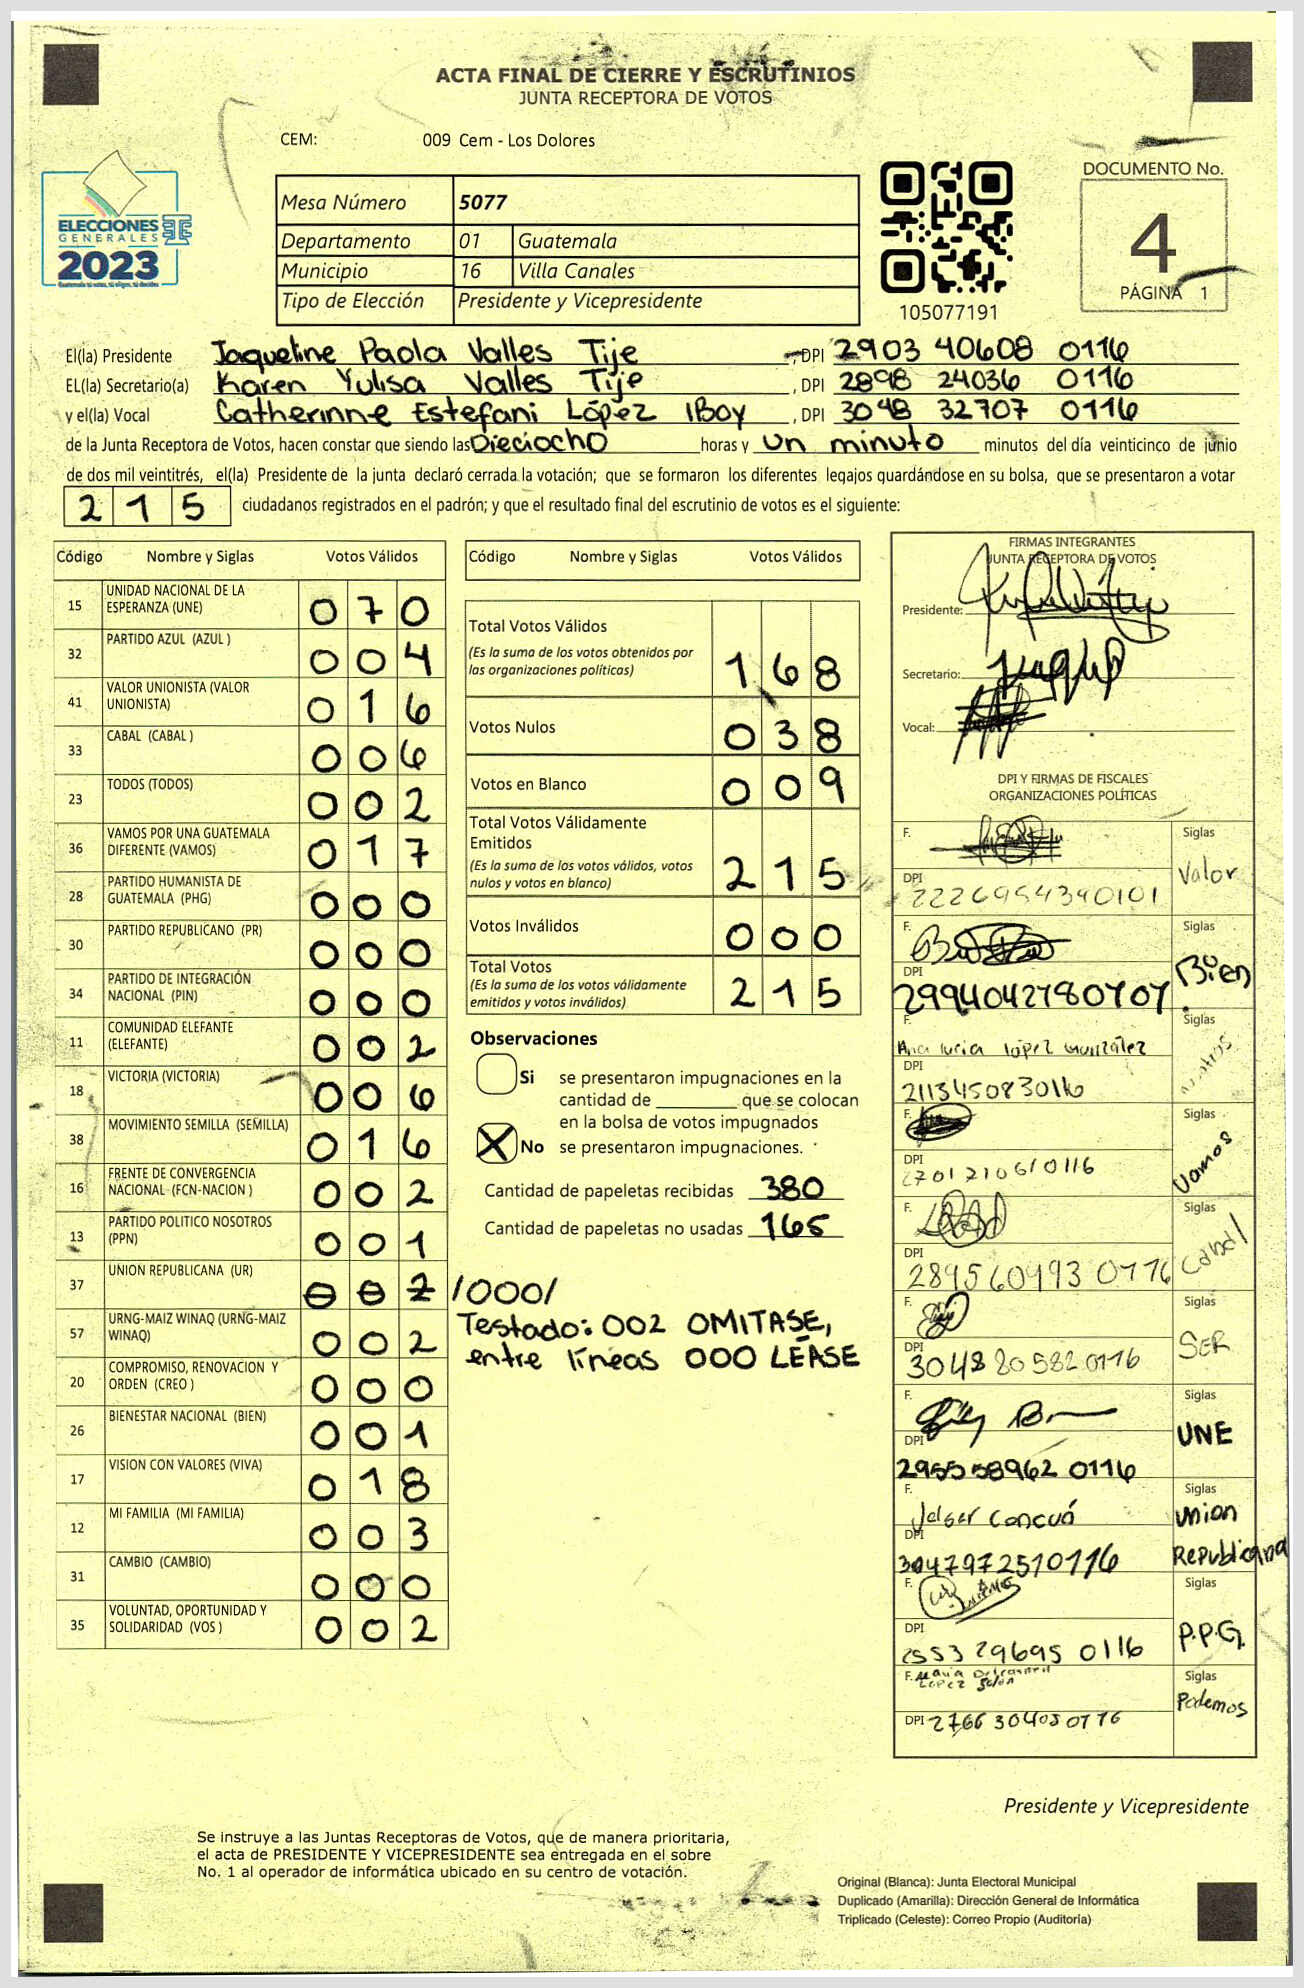 ACTA FINAL DE CIERRE Y ESCRUTINIOS
JUNTA RECEPTORA DE VOTOS
CEM: 009 Cem - Los Dolores
ELECCIONES
GENERALES
2023
Guatemala tú votas, tú eliges, tú decides
Mesa Número 5077
Departamento 01 Guatemala
Municipio 16 Villa Canales
Tipo de Elección Presidente y Vicepresidente
105077191
DOCUMENTO No.
4
PÁGINA 1
El(la) Presidente Jaqueline Paola Valles Tije , DPI 2903 40608 0116
EL(la) Secretario(a) Karen Yulisa Valles Tije , DPI 2898 24036 0116
y el(la) Vocal Catherinne Estefani López IBoy , DPI 3048 32707 0116
de la Junta Receptora de Votos, hacen constar que siendo las Dieciocho horas y un minuto minutos del día veinticinco de junio
de dos mil veintitrés, el(la) Presidente de la junta declaró cerrada la votación; que se formaron los diferentes legajos guardándose en su bolsa, que se presentaron a votar
2 1 5 ciudadanos registrados en el padrón; y que el resultado final del escrutinio de votos es el siguiente:
Código Nombre y Siglas Votos Válidos
15 UNIDAD NACIONAL DE LA ESPERANZA (UNE) 0 7 0
32 PARTIDO AZUL (AZUL ) 0 0 4
41 VALOR UNIONISTA (VALOR UNIONISTA) 0 1 6
33 CABAL (CABAL ) 0 0 6
23 TODOS (TODOS) 0 0 2
36 VAMOS POR UNA GUATEMALA DIFERENTE (VAMOS) 0 1 7
28 PARTIDO HUMANISTA DE GUATEMALA (PHG) 0 0 0
30 PARTIDO REPUBLICANO (PR) 0 0 0
34 PARTIDO DE INTEGRACIÓN NACIONAL (PIN) 0 0 0
11 COMUNIDAD ELEFANTE (ELEFANTE) 0 0 2
18 VICTORIA (VICTORIA) 0 0 6
38 MOVIMIENTO SEMILLA (SEMILLA) 0 1 6
16 FRENTE DE CONVERGENCIA NACIONAL (FCN-NACION ) 0 0 2
13 PARTIDO POLITICO NOSOTROS (PPN) 0 0 1
37 UNION REPUBLICANA (UR) 0 0 2 /000/
57 URNG-MAIZ WINAQ (URNG-MAIZ WINAQ) 0 0 2
20 COMPROMISO, RENOVACION Y ORDEN (CREO ) 0 0 0
26 BIENESTAR NACIONAL (BIEN) 0 0 1
17 VISION CON VALORES (VIVA) 0 1 8
12 MI FAMILIA (MI FAMILIA) 0 0 3
31 CAMBIO (CAMBIO) 0 0 0
35 VOLUNTAD, OPORTUNIDAD Y SOLIDARIDAD (VOS ) 0 0 2
Código Nombre y Siglas Votos Válidos
Total Votos Válidos
(Es la suma de los votos obtenidos por las organizaciones políticas) 1 6 8
Votos Nulos 0 3 8
Votos en Blanco 0 0 9
Total Votos Válidamente Emitidos
(Es la suma de los votos válidos, votos nulos y votos en blanco) 2 1 5
Votos Inválidos 0 0 0
Total Votos
(Es la suma de los votos válidamente emitidos y votos inválidos) 2 1 5
Observaciones
Si se presentaron impugnaciones en la
cantidad de ________ que se colocan
en la bolsa de votos impugnados
X No se presentaron impugnaciones.
Cantidad de papeletas recibidas 380
Cantidad de papeletas no usadas 165
Testado: 002 OMITASE,
entre líneas 000 LEASE
FIRMAS INTEGRANTES
JUNTA RECEPTORA DE VOTOS
Presidente:
Secretario:
Vocal:
DPI Y FIRMAS DE FISCALES
ORGANIZACIONES POLÍTICAS
F. Siglas
DPI Valor
2226954340101
F. Siglas
DPI Bien
2994042780707
F. Siglas
Ana lucia López González
DPI
2113450830116
F. Siglas
DPI Vamos
2701210610116
F. Siglas
DPI Cabal
289560993 0116
F. Siglas
DPI SER
3048205820116
F. Siglas
DPI UNE
2955589620116
F. Siglas
Concuá Union
DPI Republicana
3047972510116
F. Siglas
DPI P.P.G.
2553 29695 0116
F. Siglas
Podemos
DPI 2766304050116
Presidente y Vicepresidente
Se instruye a las Juntas Receptoras de Votos, que de manera prioritaria,
el acta de PRESIDENTE Y VICEPRESIDENTE sea entregada en el sobre
No. 1 al operador de informática ubicado en su centro de votación.
Original (Blanca): Junta Electoral Municipal
Duplicado (Amarilla): Dirección General de Informática
Triplicado (Celeste): Correo Propio (Auditoría)